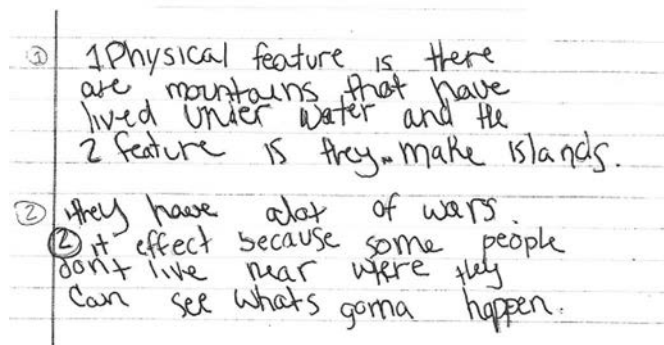 ① 1 Physical feature is there
are mountains that have
lived under water and the
2 feature is they make islands.
② they have alot of wars.
② it effect because some people
dont live near were they
can see whats gonna happen.